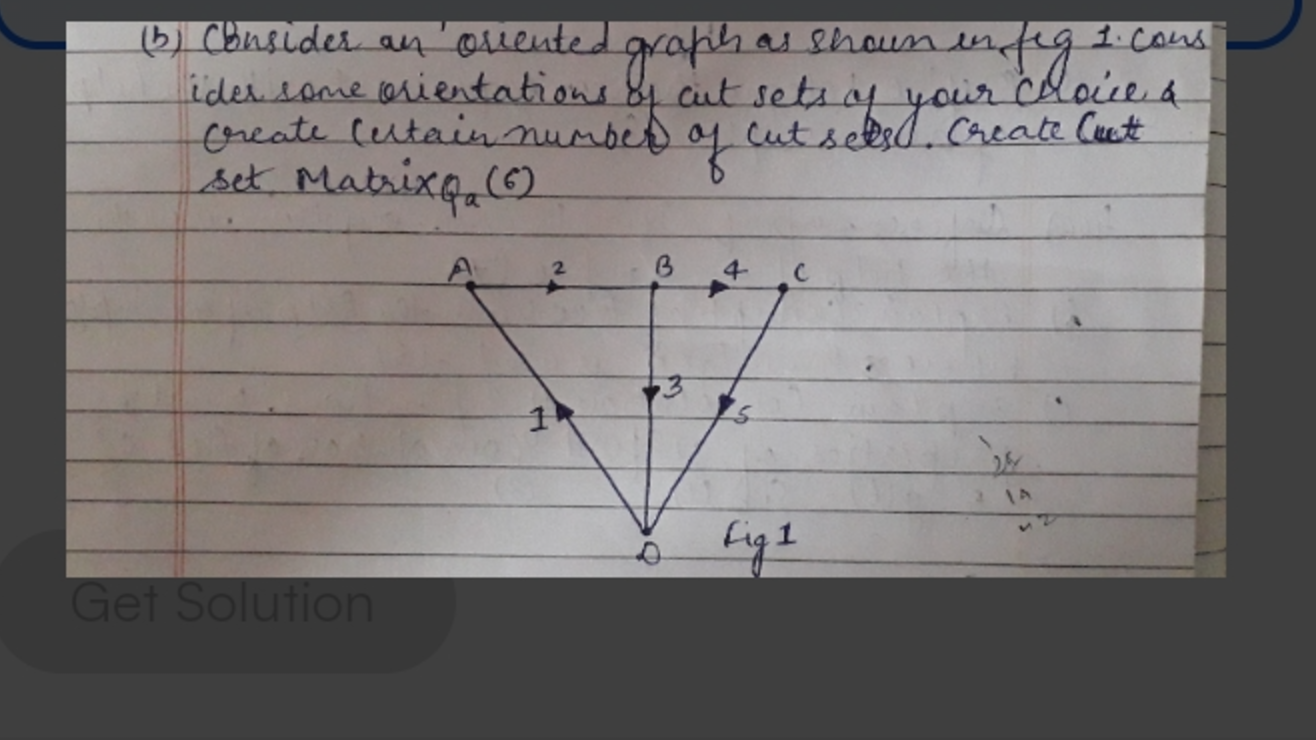 (b) Consider an oriented graph as shown in fig 1. cons
ider some orientations of cut sets of your choice &
create certain number of cut sets. Create Cut
set Matrix Qa (6)
A 2 B 4 C
1 3 5
D Fig 1
Get Solution